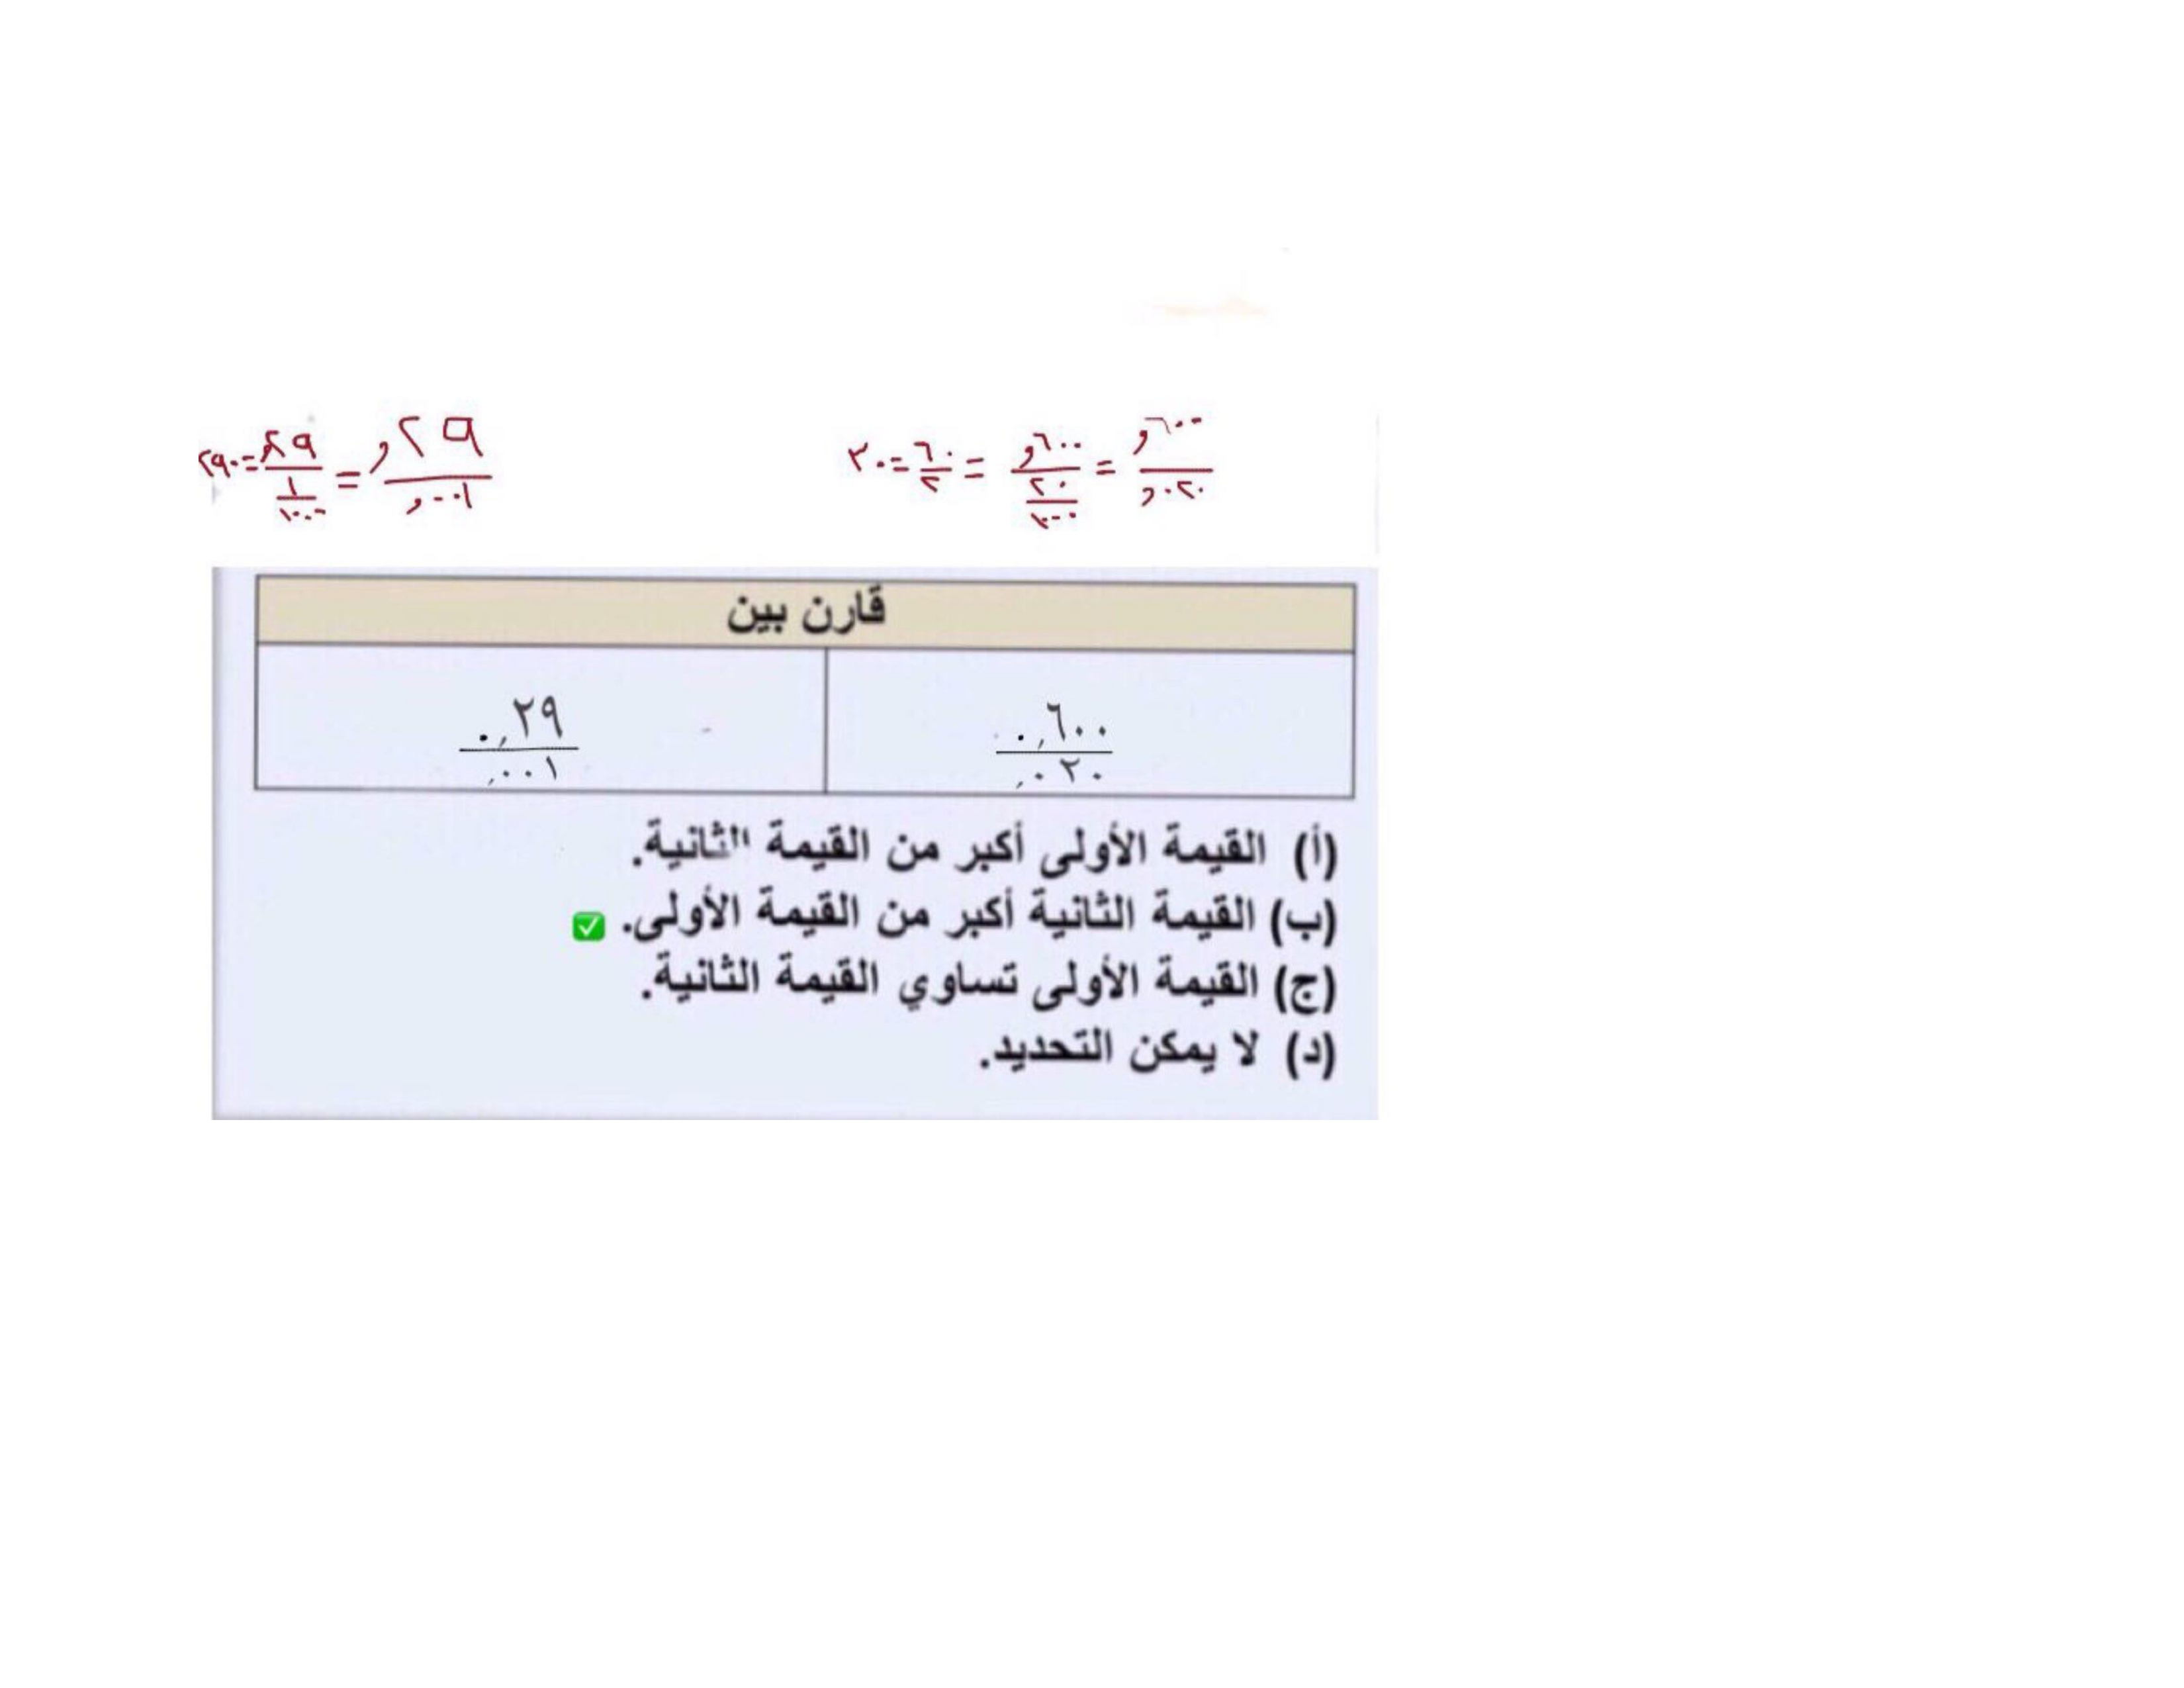 ٦٠٠و / ٠٢٠و = ٦٠٠و / ٢٠ / ١٠٠٠ = ٦٠ / ٢ = ٣٠
٢٩و / ٠٠١و = ٢٩و / ١ / ١٠٠٠ = ٢٩٠
قارن بين
٠,٦٠٠ / ,٠٢٠
٠,٢٩ / ,٠٠١
(أ) القيمة الأولى أكبر من القيمة الثانية.
(ب) القيمة الثانية أكبر من القيمة الأولى. ✅
(ج) القيمة الأولى تساوي القيمة الثانية.
(د) لا يمكن التحديد.